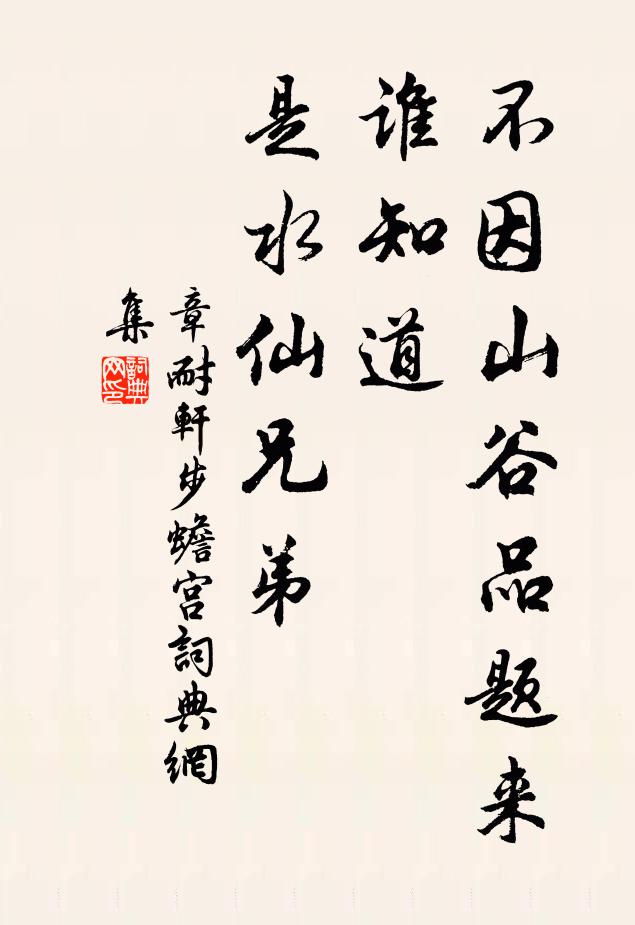 不因山谷品题来
谁知道
是水仙兄弟
章耐軒步蟾宫詞典網
集
詞典
网印